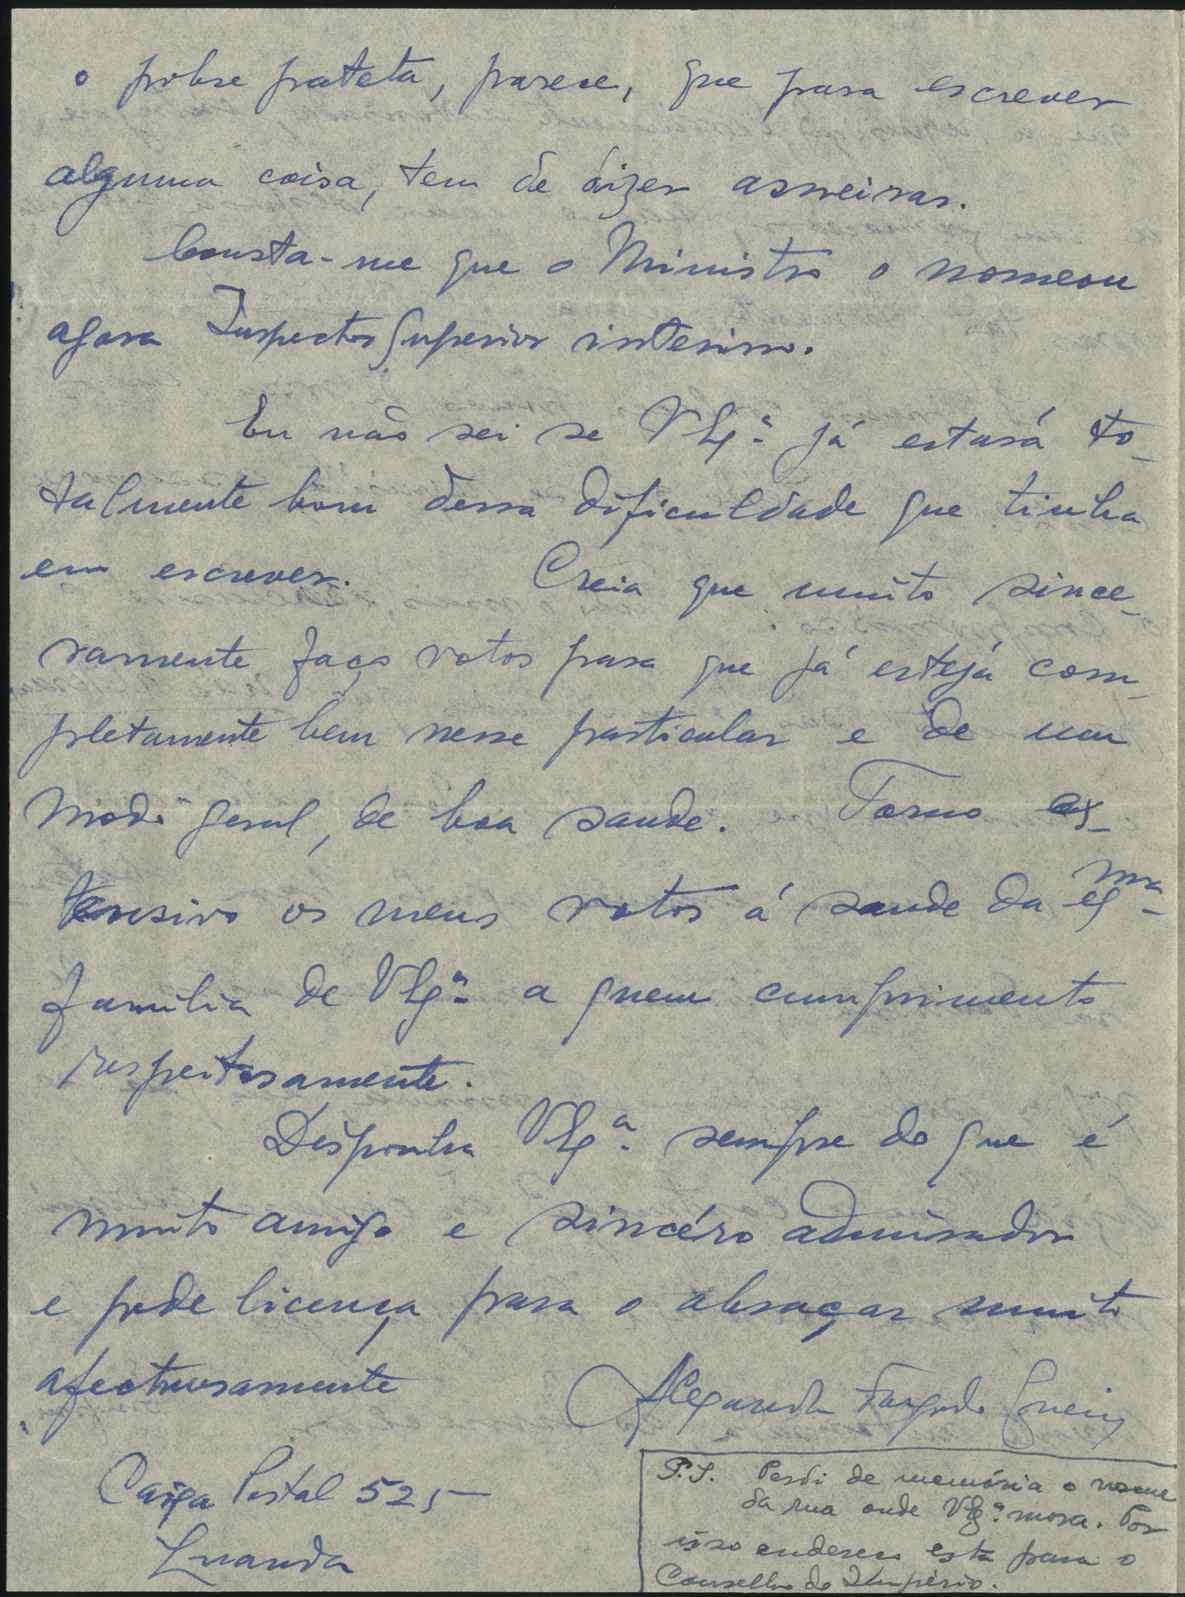 o pobre pateta, parece, que para escrever
alguma coisa, tem de dizer asneiras.
Consta-me que o Ministro o nomeou
agora Inspector Superior interino.
Eu não sei se V Exª já estará to-
talmente bom dessa dificuldade que tinha
em escrever. Creia que muito since-
ramente faço votos para que já estejá com-
pletamente bem nesse particular e de um
modo geral, de boa saude. Torno ex-
tensivo os meus votos á saude da Exma
familia de V Exª a quem cumprimento
respeitosamente.
Disponha V Exª sempre do que é
muito amigo e sincéro admirador
e pede licença para o abraçar muito
afectuosamente
Alexandre
Caixa Postal 525
Luanda
P.S. Perdi de memória o nome
da rua onde V Exª mora. Por
isso endereço esta para o
Conselho do Império.